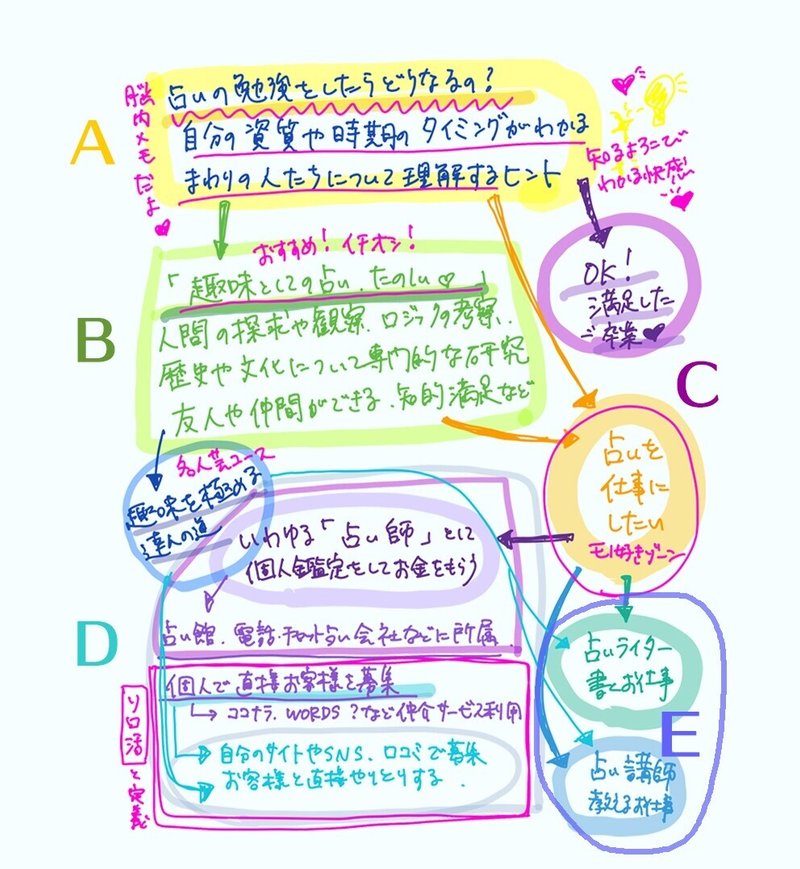 占いの勉強をしたらどうなるの?
自分の資質や時期のタイミングがわかる
まわりの人たちについて理解するヒント
脳内メモだよ♥
A
知るよろこび
わかる快感
おすすめ!イチオシ!
「趣味としての占い、たのしい♡」
人間の探求や観察、ロジックの考察、
歴史や文化について専門的な研究
友人や仲間ができる、知的満足など
B
OK!
満足した
ご卒業♥
C
占いを
仕事に
したい
モノ好きゾーン
名人芸コース
趣味を極める
達人の道
いわゆる「占い師」として
個人鑑定をしてお金をもらう
占い館、電話・チャット占い会社などに所属
D
個人で直接お客様を募集
↳ ココナラ、WORDS?など仲介サービス利用
→ 自分のサイトやSNS、口コミで募集
お客様と直接やりとりする。
ソロ活と定義
占いライター
書くお仕事
E
占い講師
教えるお仕事